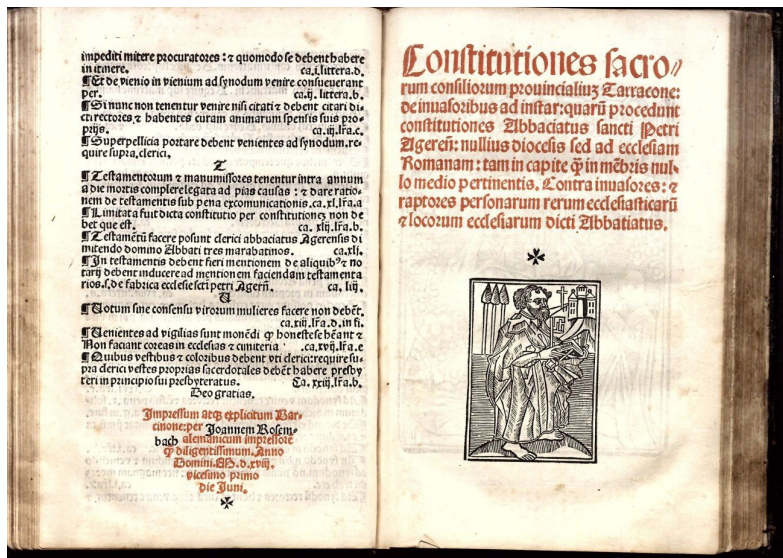 impediti mitere procuratores : ⁊ quomodo se debent habere
in itinere. ca.i.littera.d.
¶Et de vienio in vienium ad synodum venire consueuerant
per. ca.ij. littera.b.
¶Si nunc non tenentur venire nisi citati ⁊ debent citari di⸗
cti rectores ⁊ habentes curam animarum spensis suis pro⸗
prijs. ca. iij.lr̃a.c.
¶Superpellicia portare debent venientes ad synodum.re⸗
quire supra.clerici.
T
¶Testamentorum ⁊ manumissores tenentur intra annum
a die mortis complere legata ad pias causas : ⁊ dare ratio⸗
nem de testamentis sub pena excomunicationis.ca.xl.lr̃a.a
¶Limitata fuit dicta constitutio per constitutionẽ ⁊ non de
bet que est. ca. xlij.lr̃a.b.
¶Testamẽtũ facere posunt clerici abbaciatus Agerensis di
mitendo domino Abbati tres marabatinos. ca.xlj.
¶In testamentis debent fieri mentionem de aliquibꝰ ⁊ no
tarij debent inducere ad mentionem faciendam testamenta
rios.s.de fabrica ecclesie scti petri Agerñ. ca. liij.
U
¶Uotum sine consensu virorum mulieres facere non debẽt.
ca.xiij.lr̃a.d.in fi.
¶Uenientes ad vigilias sunt monẽdi ꝙ honeste se hẽant ⁊
Non faciant coreas in ecclesias ⁊ cimiteria .ca.xvij.lr̃a.e
¶Quibus vestibus ⁊ coloribus debent vti clerici:require su⸗
pra clerici vestes proprias sacerdotales debẽt habere presby
teri in principio sui presbyteratus. Ca. xxij.lr̃a.b.
Deo gratias.
Impressum atqꝫ explicitum Bar⸗
cinone:per Joannem Rosem⸗
bach alemanicum impressore
ꝙ diligentissimum. Anno
Domini.M. d.xvij.
vicesimo primo
die Juni.
Constitutiones sacro⸗
rum consiliorum prouincialiuꝫ Tarracone:
de inuasoribus ad instar:quarũ procedunt
constitutiones Abbaciatus sancti Petri
Agereñ: nullius diocesis sed ad ecclesiam
Romanam : tam in capite ꝙ̃ in mẽbris nul⸗
lo medio pertinentis. Contra inuasores: ⁊
raptores personarum rerum ecclesiasticarũ
⁊ locorum ecclesiarum dicti Abbatiatus.